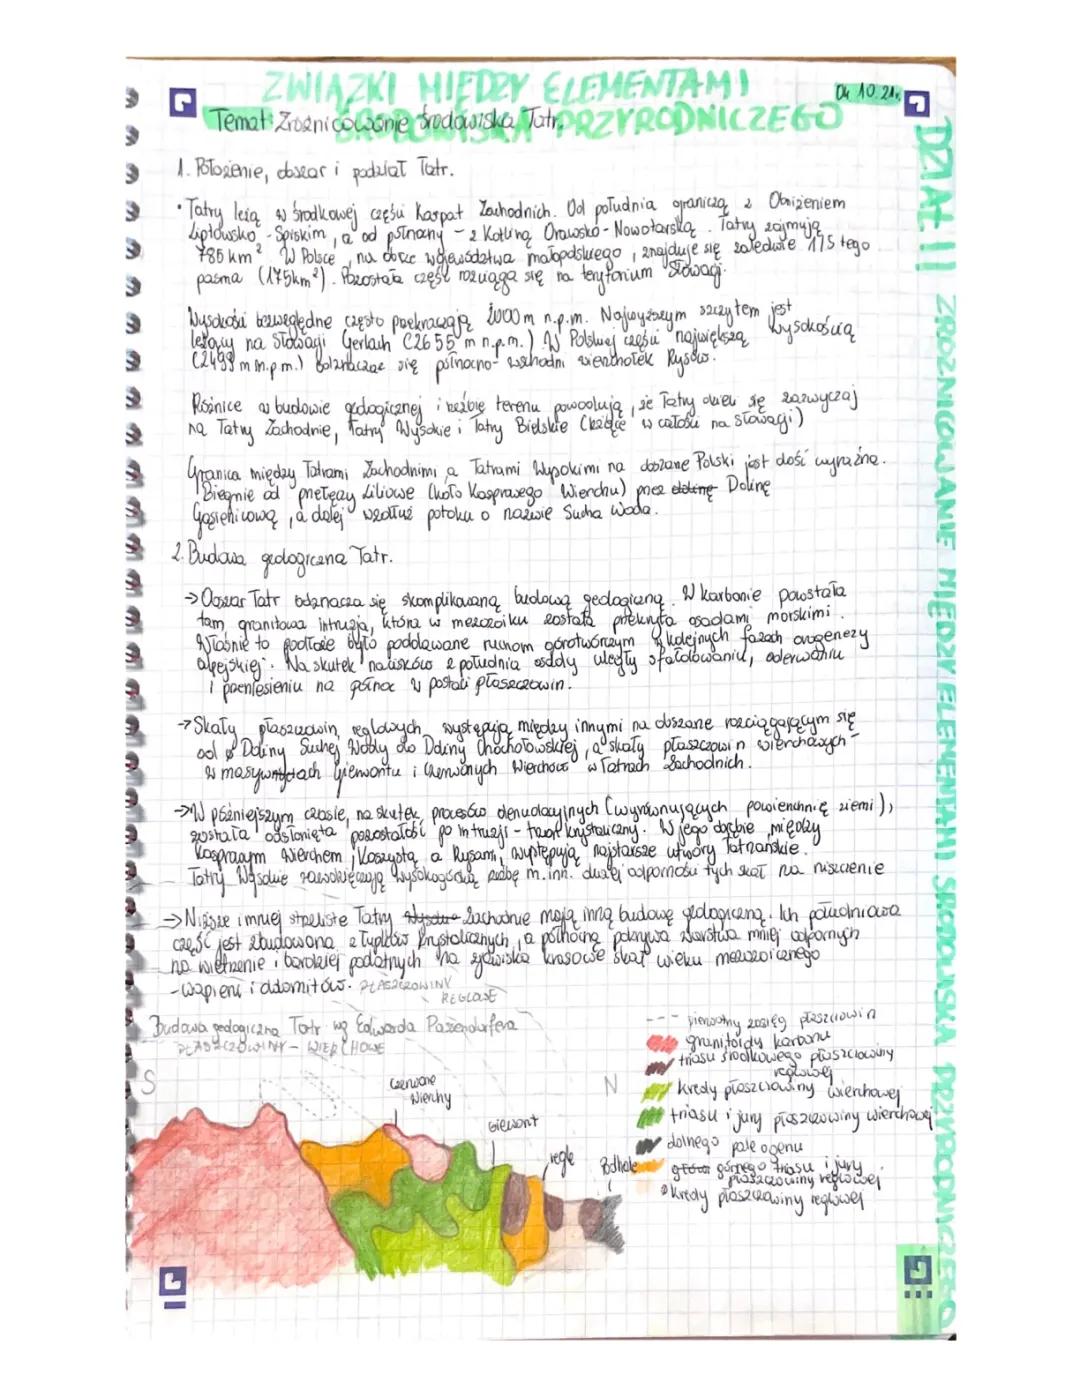 ZWIĄZKI MIĘDZY ELEMENTAMI
ŚRODOWISKA PRZYRODNICZEGO
04.10.21r.
Temat: Zróżnicowanie środowiska Tatr.
1. Położenie, obszar i podział Tatr.
• Tatry leżą w środkowej części Karpat Zachodnich. Od południa graniczą z Obniżeniem
Liptowsko-Spiskim, a od północy - z Kotliną Orawsko-Nowotarską. Tatry zajmują
785 km². W Polsce, na obszarze województwa małopolskiego, znajduje się zaledwie 1/5 tego
pasma (175km²). Pozostała część rozciąga się na terytorium Słowacji.
Wysokości bezwzględne często przekraczają 2000 m n.p.m. Najwyższym szczytem jest
leżący na Słowacji Gerlach (2655 m n.p.m.) W Polskiej części największą wysokością
(2499 m n.p.m.) odznacza się północno-wschodni wierzchołek Rysów.
Różnice w budowie geologicznej i rzeźbie terenu powodują, że Tatry dzieli się zazwyczaj
na Tatry Zachodnie, Tatry Wysokie i Tatry Bielskie (leżące w całości na Słowacji)
Granica między Tatrami Zachodnimi a Tatrami Wysokimi na obszarze Polski jest dość wyraźna.
Biegnie od przełęczy Liliowe (koło Kasprowego Wierchu) przez dolinę Dolinę
Gąsienicową, a dalej wzdłuż potoku o nazwie Sucha Woda.
2. Budowa geologiczna Tatr.
→ Obszar Tatr odznacza się skomplikowaną budową geologiczną. W karbonie powstała
tam granitowa intruzja, która w mezozoiku została przykryta osadami morskimi.
Właśnie to podłoże było poddawane ruchom górotwórczym w kolejnych fazach orogenezy
alpejskiej. Na skutek nacisków z południa osady uległy sfałdowaniu, oderwaniu
i przeniesieniu na północ w postaci płaszczowin.
→ Skały płaszczowin reglowych występują między innymi na obszarze rozciągającym się
od Doliny Suchej Wody do Doliny Chochołowskiej, a skały płaszczowin wierchowych -
w masywach Giewontu i Czerwonych Wierchów w Tatrach Zachodnich.
→ W późniejszym czasie, na skutek procesów denudacyjnych (wyrównujących powierzchnię ziemi),
została odsłonięta pozostałość po intruzji - trzon krystaliczny. W jego obrębie, między
Kasprowym Wierchem, Koszystą a Rysami, występują najstarsze utwory tatrzańskie.
Tatry Wysokie zawdzięczają wysokogórską rzeźbę m.in. dużej odporności tych skał na niszczenie
→ Niższe i mniej strzeliste Tatry Wysokie Zachodnie mają inną budowę geologiczną. Ich południowa
część jest zbudowana z łupków krystalicznych, a północną pokrywa warstwa mniej odpornych
na wietrzenie i bardziej podatnych na zjawiska krasowe skał wieku mezozoicznego
- wapieni i dolomitów.
PŁASZCZOWINY
REGLOWE
Budowa geologiczna Tatr wg Edwarda Passendorfera
PŁASZCZOWINY - WIERCHOWE
S
N
Czerwone
Wierchy
Giewont
regle
Podhale
--- pierwotny zasięg płaszczowin
granitoidy karbonu
triasu środkowego płaszczowiny
reglowej
kredy płaszczowiny wierchowej
triasu i jury płaszczowiny wierchowej
dolnego paleogenu
górnego triasu i jury
płaszczowiny reglowej
kredy płaszczowiny reglowej
DZIAŁ II ZRÓŻNICOWANIE MIĘDZY ELEMENTAMI ŚRODOWISKA PRZYRODNICZEGO